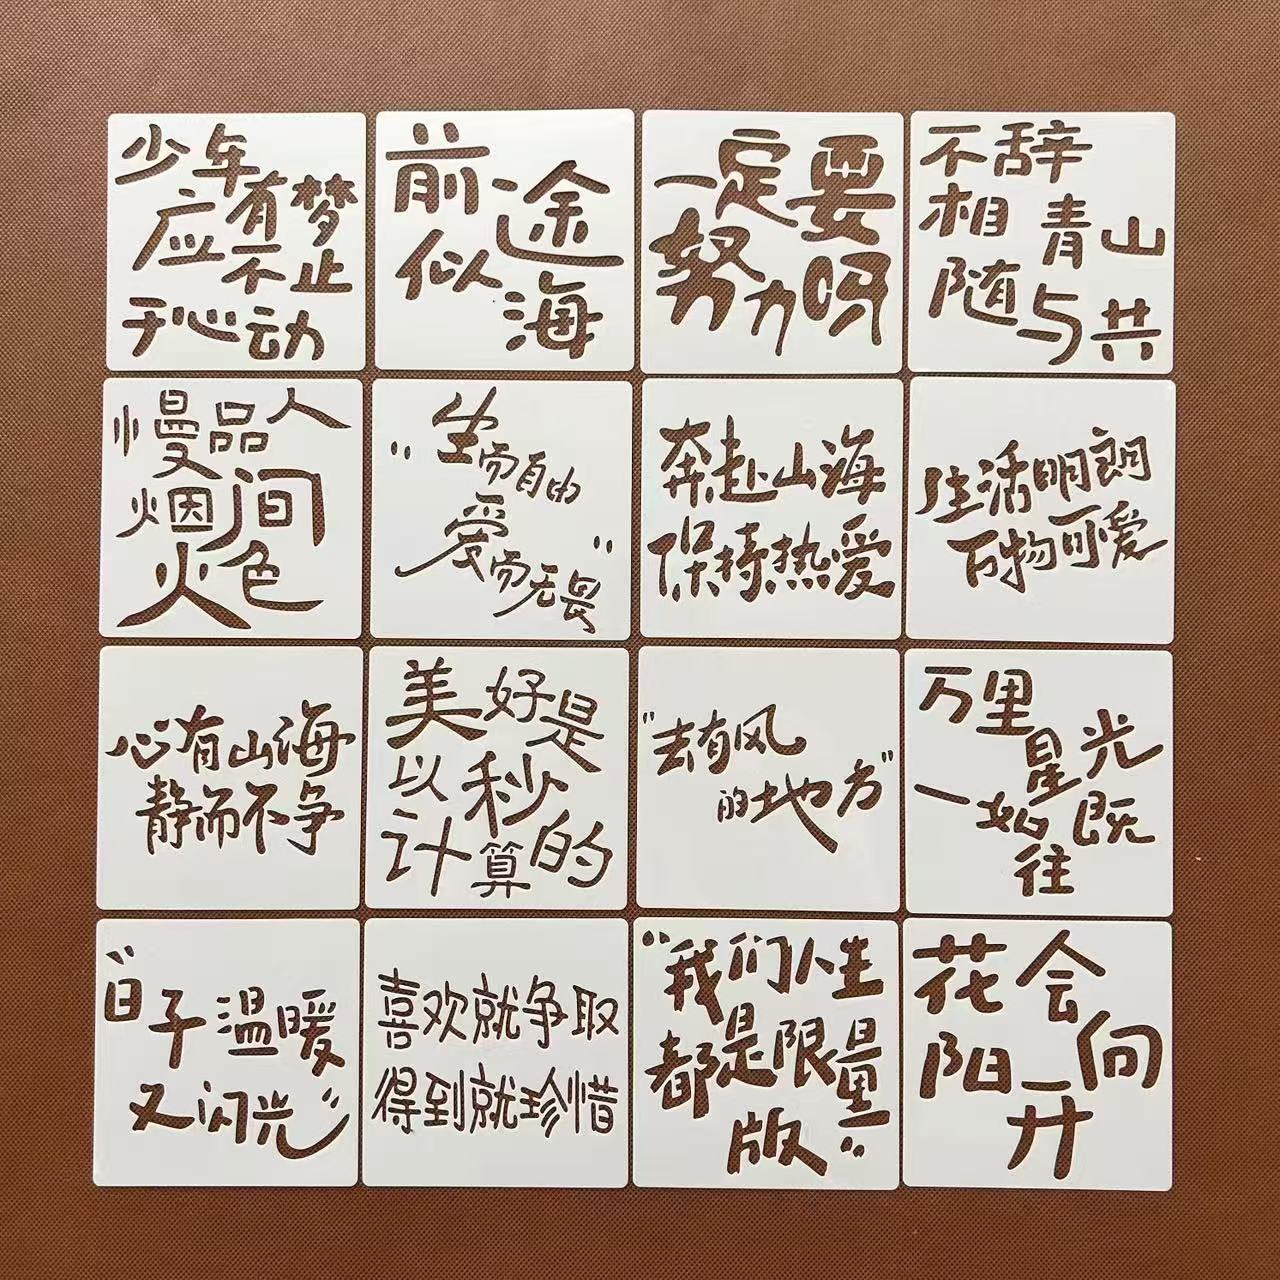 少年
应有梦
不止
于心动
前途
似海
一定要
努力呀
不辞
相青山
随与共
慢品人
烟间
火色
“生而自由
爱而无畏”
奔赴山海
保持热爱
生活明朗
万物可爱
心有山海
静而不争
美好是
以秒
计算的
“去有风
的地方”
万里
星光
一如既
往
“日子温暖
又闪光”
喜欢就争取
得到就珍惜
“我们人生
都是限量
版”
花会
阳向
开